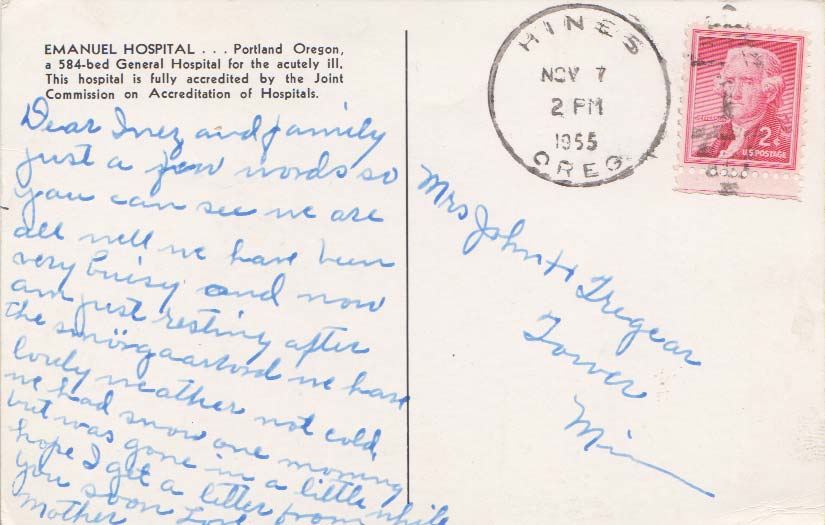 EMANUEL HOSPITAL . . . Portland Oregon,
a 584-bed General Hospital for the acutely ill.
This hospital is fully accredited by the Joint
Commission on Accreditation of Hospitals.
Dear Inez and family
just a few words so
you can see we are
all well we have been
very buisy and now
am just resting after
the smörgaarbord we have
lovely weather not cold,
we had snow one morning
but was gone in a little while
hope I get a letter from
you soon Love
Mother
HINES
NOV 7
2 PM
1955
OREG
2¢
U.S. POSTAGE
Mrs John H Tregear
Tower
Min